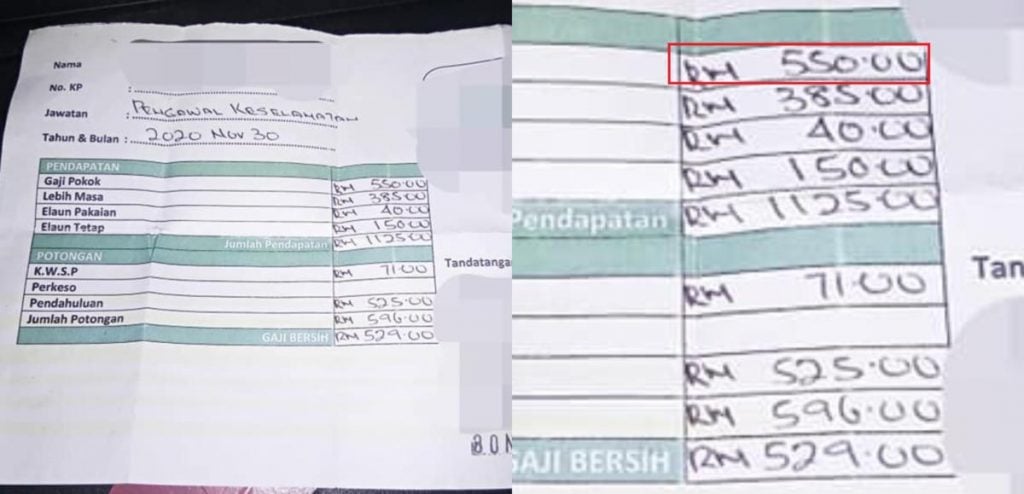 Nama
No. KP :
Jawatan : PENGAWAL KESELAMATAN
Tahun & Bulan : 2020 NOV 30
PENDAPATAN
Gaji Pokok RM 550.00
Lebih Masa RM 385.00
Elaun Pakaian RM 40.00
Elaun Tetap RM 150.00
Jumlah Pendapatan RM 1125.00
POTONGAN
K.W.S.P RM 71.00
Perkeso
Pendahuluan RM 525.00
Jumlah Potongan RM 596.00
GAJI BERSIH RM 529.00
Tandatangan
RM 550.00
RM 385.00
RM 40.00
RM 150.00
Pendapatan RM 1125.00
RM 71.00
Tan
RM 525.00
RM 596.00
GAJI BERSIH RM 529.00